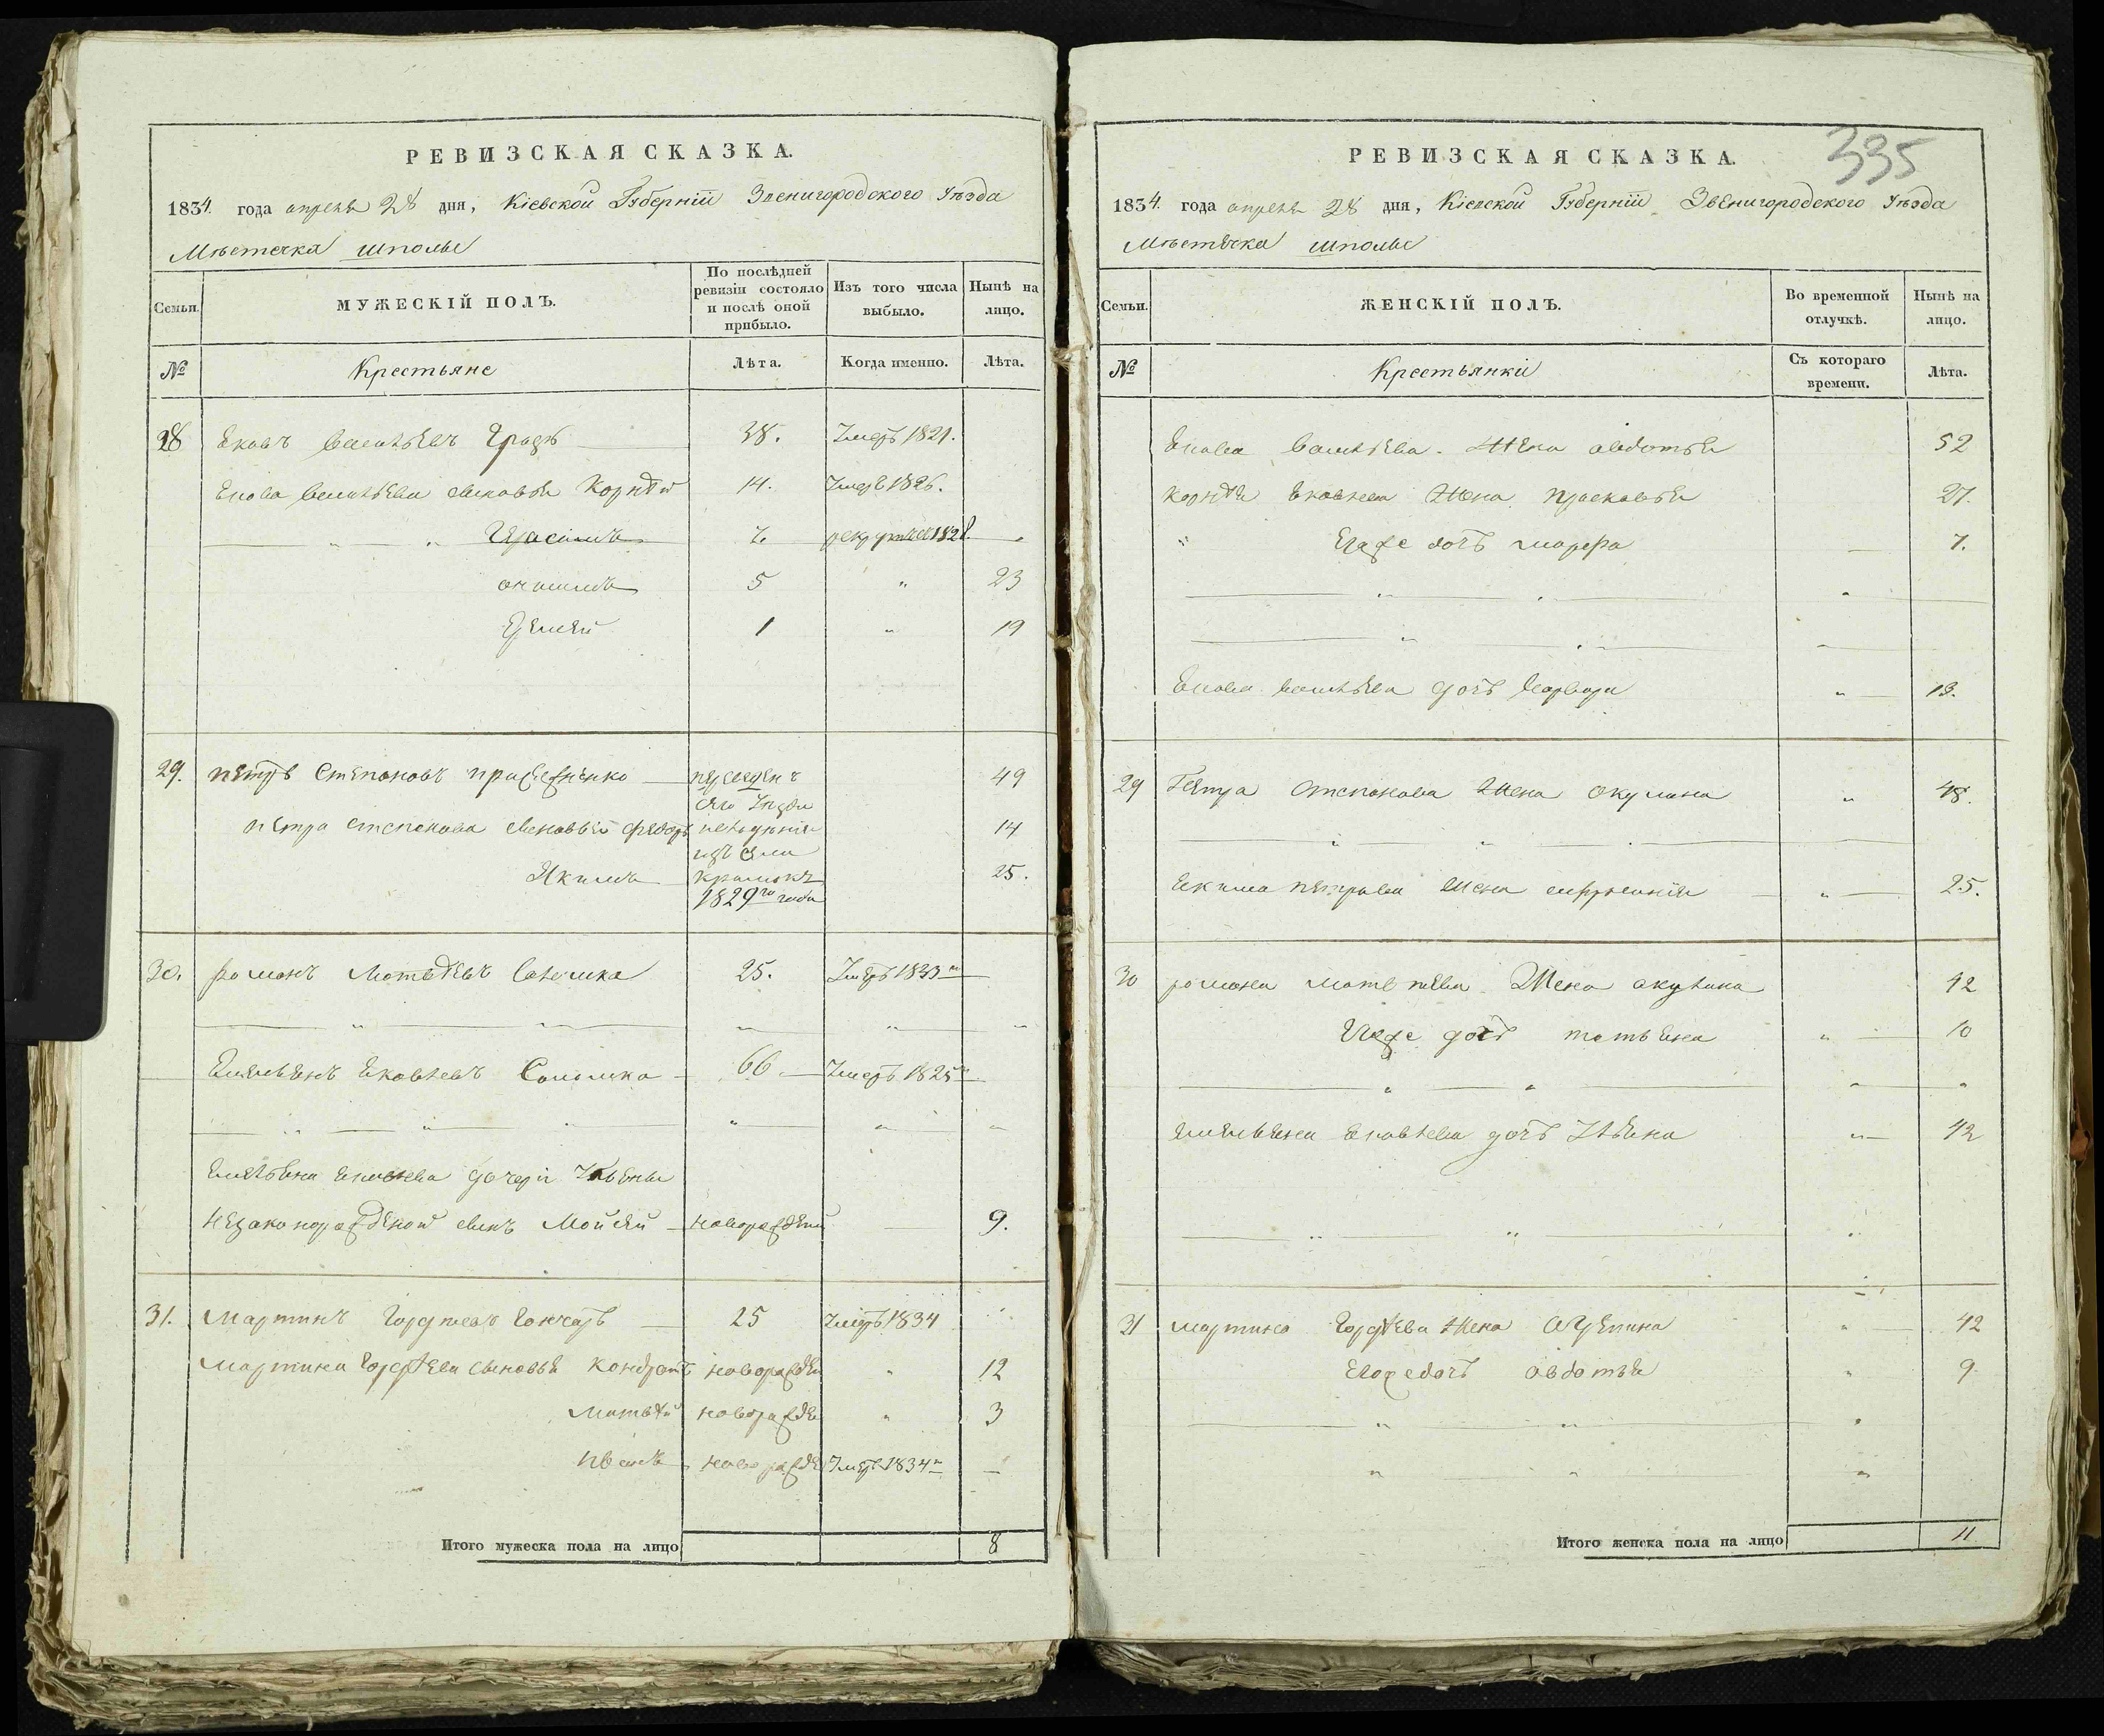 РЕВИЗСКАЯ СКАЗКА.
1834. года апреля 28 дня, Кіевской Губерніи Звенигородского Уѣзда
Мѣстечка Шполы
Семьи.
МУЖЕСКІЙ ПОЛЪ.
По послѣдней ревизіи состояло и послѣ оной прибыло.
Изъ того числа выбыло.
Нынѣ на лицо.
№
Крестьяне
Лѣта.
Когда именно.
Лѣта.
28 Ековъ Васильевъ 38. Умеръ 1821.
Екова Васильева сыновья Корнѣй 14. Умеръ 1826.
" " Герасимъ 7. 1828.
онисимъ 5 " 23
Еремей 1 " 19
29. Петръ Степановъ 49
Петра степанова сыновья федоръ 14
Якимъ 25.
переведенъ
изъ села
1829го года
30. романъ Мотвѣевъ 25. Умеръ 1833го
" " " " "
Емельянъ Яковлевъ Соломка 66 Умеръ 1825го
" " " " "
Емельяна Яковлева дочери Ульяны
незаконорожденой сынъ Мойсей новорожденый 9.
31. Мартинъ Гордѣевъ Гончаръ 25 Умеръ 1834
Мартина Гордѣева сыновья Кондратъ новорожден " 12
Матвѣй новорожде " 3
новорожде Умеръ 1834го
Итого мужеска пола на лицо 8
335
РЕВИЗСКАЯ СКАЗКА.
1834. года апреля 28 дня, Кіевской Губерніи Звенигородского Уѣзда
Мѣстечка Шполы
Семьи.
ЖЕНСКІЙ ПОЛЪ.
Во временной отлучкѣ.
Нынѣ на лицо.
№
Крестьянки
Съ котораго времени.
Лѣта.
Екова Васильева Жена авдотья 52
Корнѣя Яковлева Жена Прасковья 27.
" Егоже дочь марфа 7.
" " "
" " "
Екова Васильева дочь Варвара " 13.
29 Петра степанова Жена окулина " 48.
" " "
Екима Петрова Жена " 25.
30 романа Матвѣева Жена акулина 42
Егоже дочь татьяна " 10
" " " "
Емельяна Яковлева дочь Ульяна " 42
" " "
31 мартина Гордѣева Жена " 42
Егоже дочь овдотья " 9
" " "
" " "
Итого женска пола на лицо 11